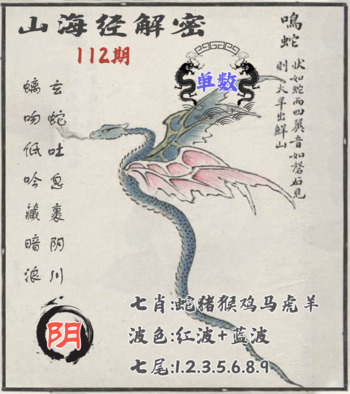 山海经解密
112期
鳴蛇
狀如蛇而四翼音如磬石見
則大旱出鮮山
单数
玄蛇吐息裹阴川
螭吻低吟藏暗浪
阴
七肖:蛇猪猴鸡马虎羊
波色:红波+蓝波
七尾:1.2.3.5.6.8.9